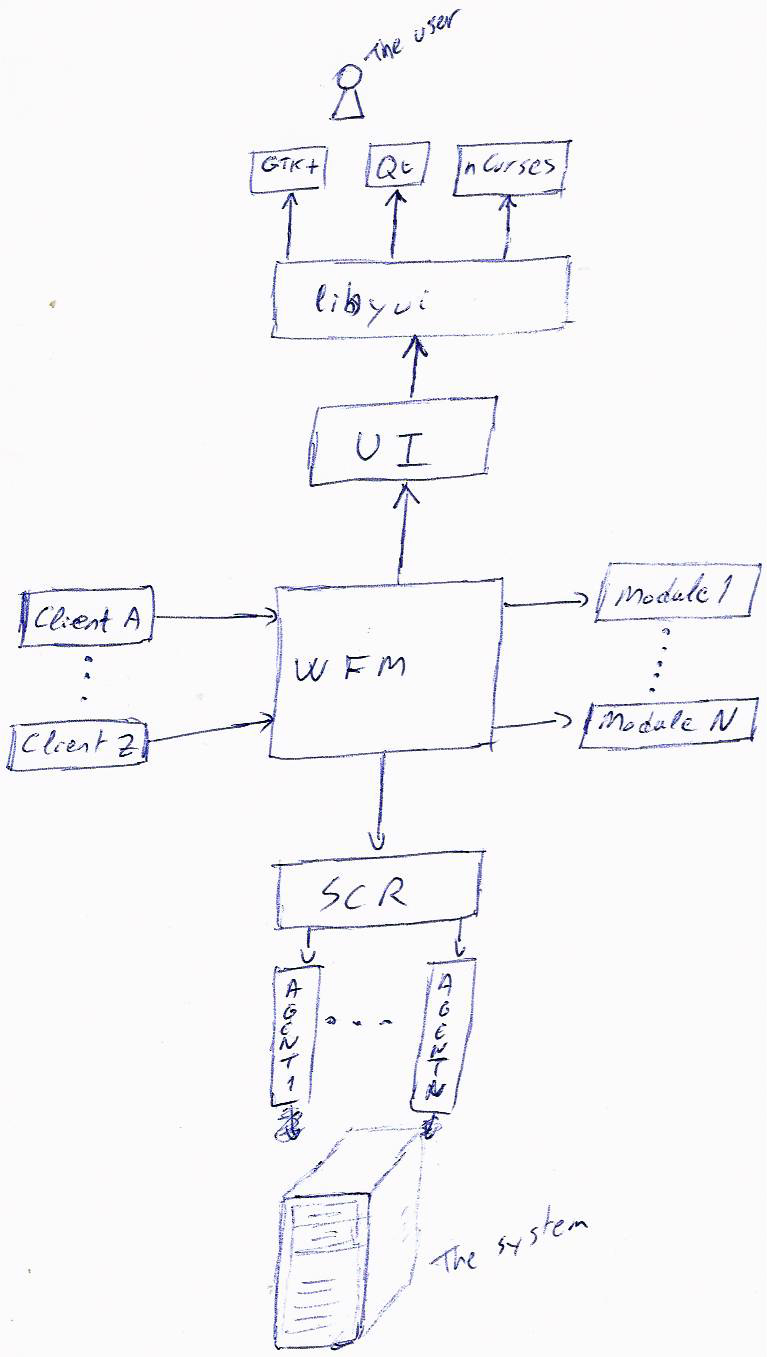 The user
GTK+
Qt
nCurses
libyui
UI
Client A
Module 1
WFM
Client Z
Module N
SCR
AGENT1
AGENTN
The system